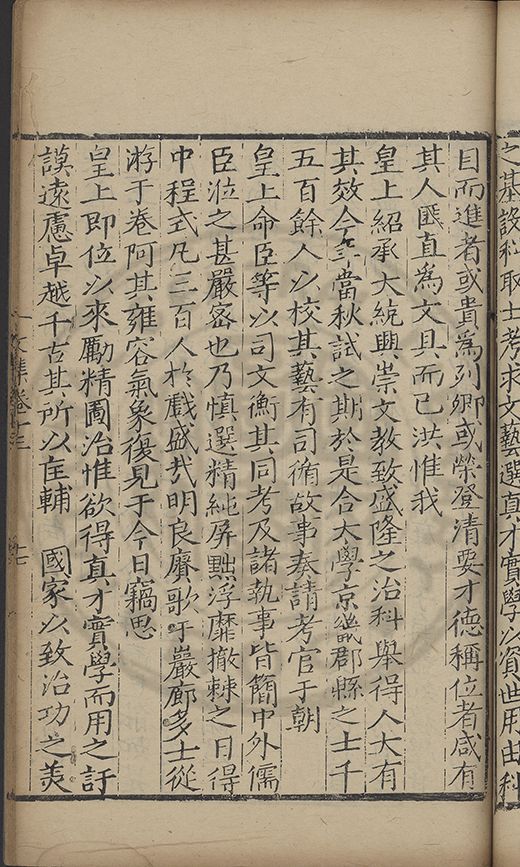 之基設科取士考求文藝選真才實學以資世用由科
目而進者或貴為列卿或榮登清要才德稱位者咸有
其人匪直為文具而已洪惟我
皇上紹承大統興崇文教致盛隆之治科舉得人大有
其效今年當秋試之期於是合太學京畿郡縣之士千
五百餘人以校其藝有司循故事奏請考官于朝
皇上命臣等以司文衡其同考及諸執事皆簡中外儒
臣涖之甚嚴密也乃慎選精純屏黜浮靡撤棘之日得
中程式凡三百人於戲盛哉明良賡歌于巖廊多士從
游于卷阿其雍容氣象復見于今日竊思
皇上即位以來勵精圖治惟欲得真才實學而用之訏
謨遠慮卓越千古其所以匡輔　國家以致治功之美
文集卷十三